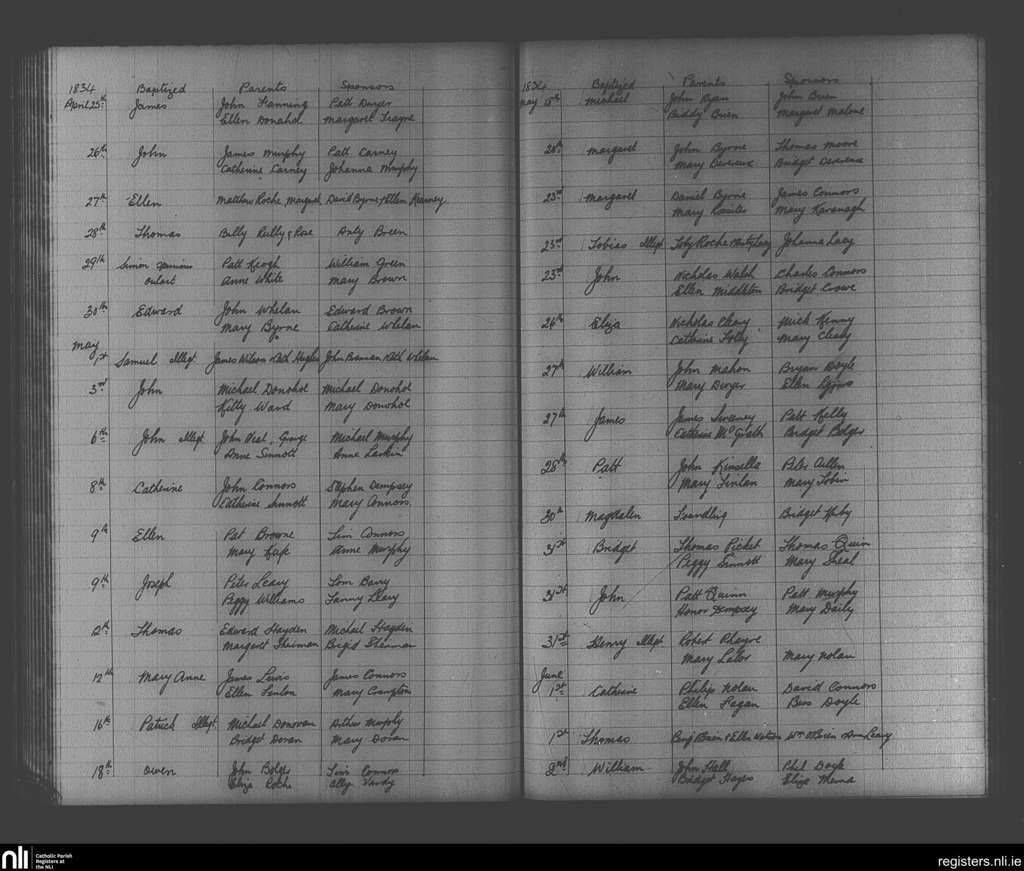 1834 Baptized Parents Sponsors
April 25th James John Fanning Patt Dwyer
Ellen Donahol Margaret
26th John James Murphy Patt Carney
Catherine Carney Johanna Murphy
27th Ellen Matthew Roche, Margaret David Byrne & Ellen Kearney.
28th Thomas Billy Reilly & Rose Anty Breen
29th Simon Patt Keogh William Green
oulart Anne White Mary Brown
30th Edward John Whelan Edward Brown
Mary Byrne Catherine Whelan
May
1st Samuel Illegt James Wilson & Cath John Brennan & Cath Whelan
3rd John Michael Donohol Michael Donohol
Kitty Ward Mary Donohol
6th John Illegt John George Michael Murphy
Anne Sinnott Anne Larkin
8th Catherine John Connors Stephen Dempsey
Catherine Sinnott Mary Connors.
9th Ellen Pat Browne Sim Connors
Mary Anne Murphy
9th Joseph Peter Leary Tom Barry
Peggy Williams Fanny Leary
12th Thomas Edward Hayden Michael Hayden
Margaret Sheiman Brigid Sheiman
12th Mary Anne James Lewis James Connors
Ellen Fenlon Mary Crampton
16th Patrick Illegt. Michael Donovan Arthur Murphy
Bridget Doran Mary Doran
18th Owen John Bolger Sim Connors
Eliza Roche Ally
1834 Baptized Parents Sponsors
May 18th Michael John Ryan John Brien
Biddy Brien Margaret Malone
20th Margaret John Byrne Thomas Moore
Mary Devereux Bridget Devereux
23rd Margaret Daniel Byrne James Connors
Mary Rositer Mary Kavanagh
23rd Tobias Illegt Toby Roche & Lacy Johanna Lacy
23rd John Nicholas Walsh Charles Connors
Ellen Middleton Bridget Crowe
26th Eliza Nicholas Cleary Mick Kenny
Catherine Foley Mary Cleary
27th William John Mahon Bryan Doyle
Mary Dwyer Ellen
27th James James Sweeney Patt Kelly
Catherine McGrath Bridget Bolger
28th Patt John Kinsella Peter Cullen
Mary Finlan Mary Tobin
30th Magdalen Foundling Bridget
31st Bridget Thomas Picket Thomas Quin
Peggy Sinnott Mary Sheal
31st John Patt Quinn Patt Murphy
Honor Dempsey Mary Daily
31st Henry Illegt Robert Phayre
Mary Lalor Mary Nolan
June
1st Catherine Philip Nolan David Connors
Ellen Fagan Bess Doyle
1st Thomas Benj Brien & Ellen Watson Wm O'Brien & Ann Leary
2nd William John Hall Phil Doyle
Bridget Hayes Eliza
nli Catholic Parish
Registers at
the NLI
registers.nli.ie